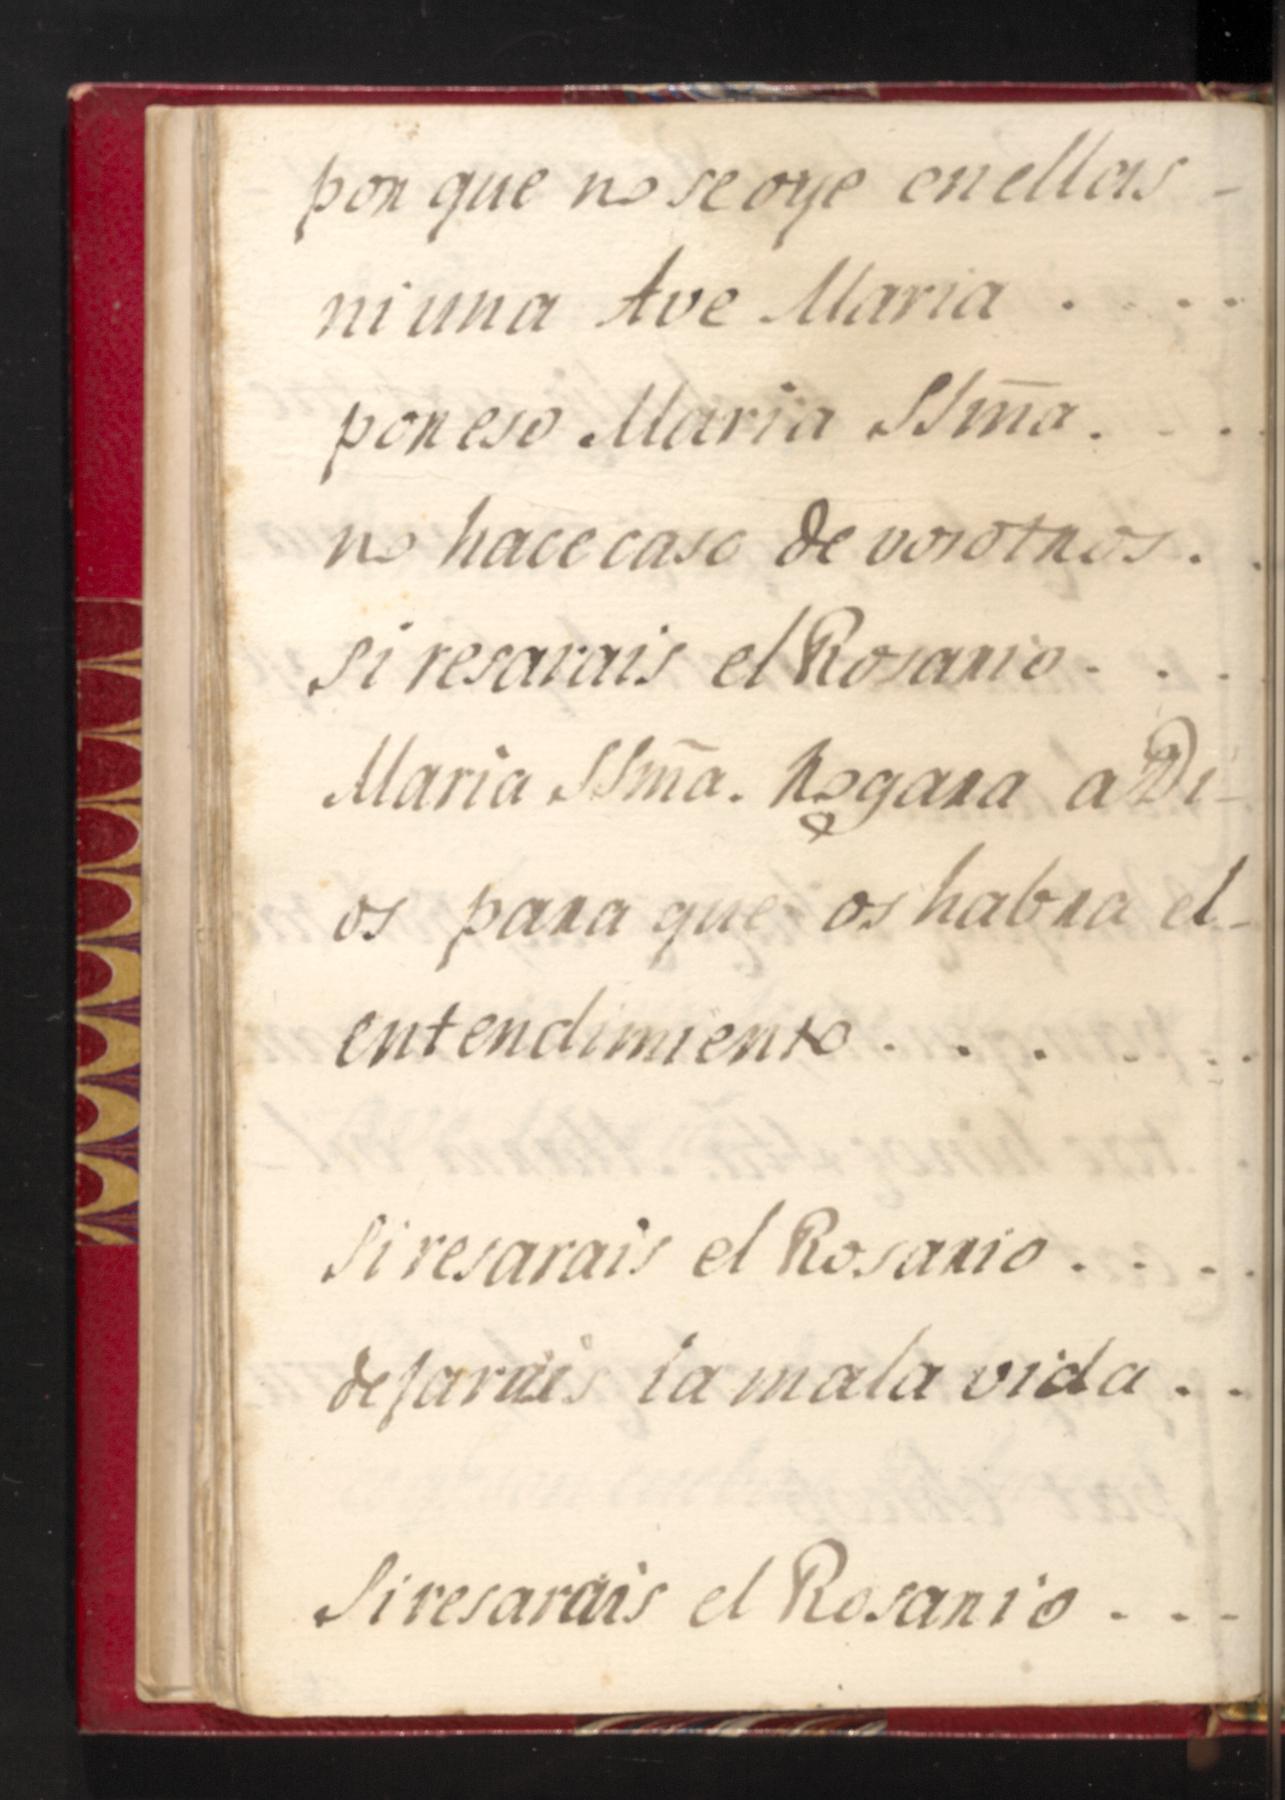 por que no se oye en ellas -
ni una Ave Maria . . . .
por eso Maria SSm̃a. - . .
no hace caso de vosotros. .
si resarais el Rosario. . .
Maria SSm̃a. Rogara a Di-
os para que os habra el -
entendimiento . . . . . .
Si resarais el Rosario . . . .
dejarais la mala vida . .
Si resarais el Rosario . . -